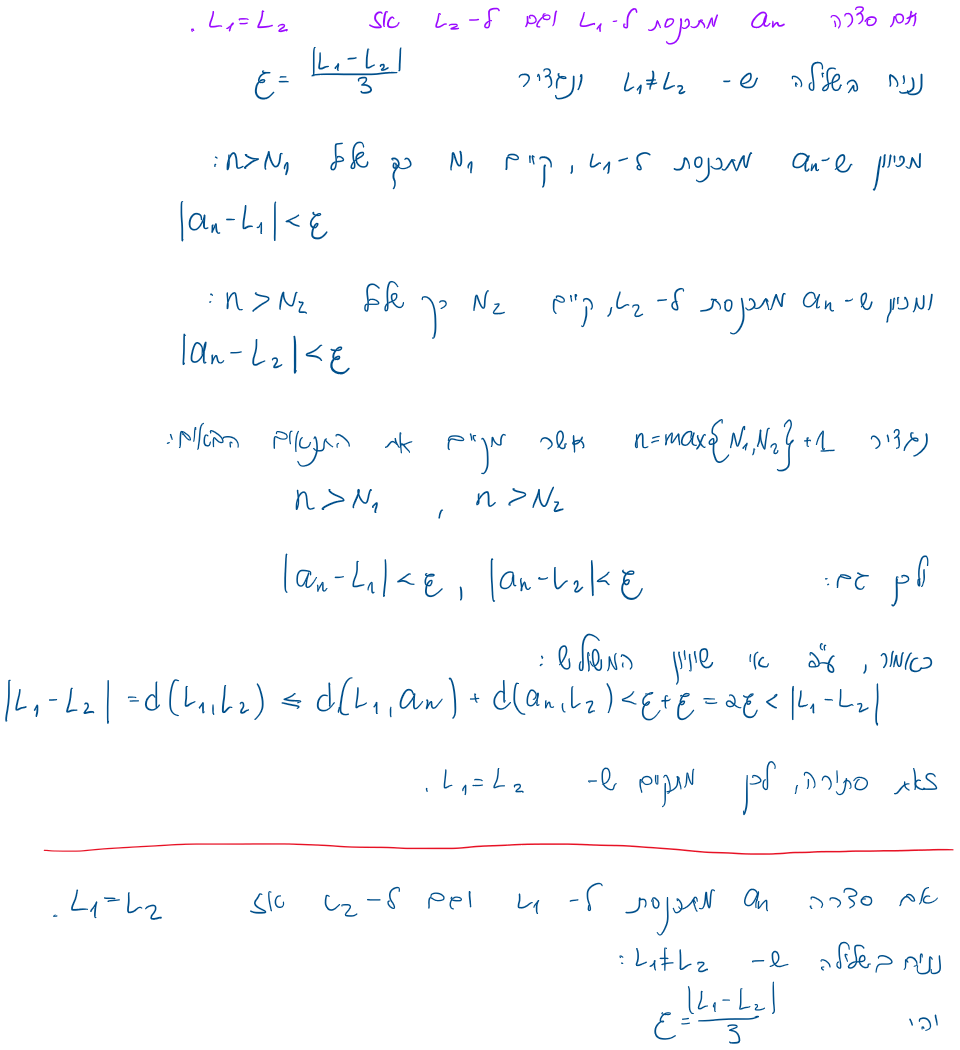 אם סדרה an מתכנסת ל-L₁ וגם ל-L₂ אז L₁=L₂.
נניח בשלילה ש- L₁≠L₂ ונגדיר ε= |L₁-L₂|/3
מכיוון ש-an מתכנסת ל-L₁, קיים N₁ כך שלכל n>N₁:
|an-L₁|<ε
ומכיוון ש-an מתכנסת ל-L₂, קיים N₂ כך שלכל n>N₂:
|an-L₂|<ε
נגדיר n=max{N₁,N₂}+1 אשר מקיים את התנאים הבאים:
n>N₁ , n>N₂
לכן גם: |an-L₁|<ε, |an-L₂|<ε
כאמור, ע"פ אי שוויון המשולש:
|L₁-L₂|=d(L₁,L₂)≤d(L₁,an)+d(an,L₂)<ε+ε=2ε<|L₁-L₂|
זאת סתירה, לכן מתקיים ש- L₁=L₂.
אם סדרה an מתכנסת ל-L₁ וגם ל-L₂ אז L₁=L₂.
נניח בשלילה ש- L₁≠L₂:
יהי ε=|L₁-L₂|/3